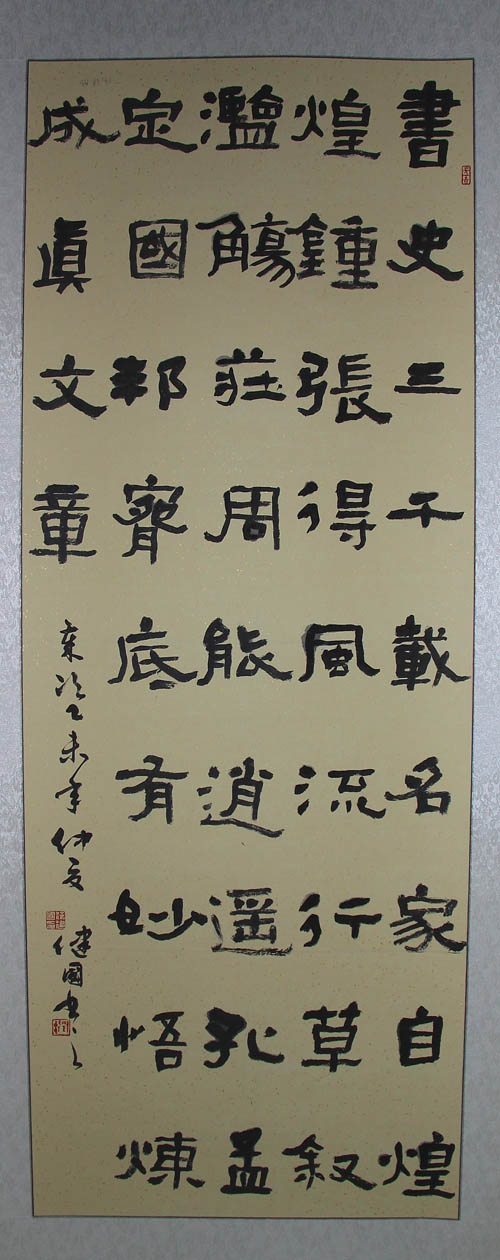 書史三千載名家自煌
煌鍾張得風流行草叙
濫觴莊周能逍遥孔孟
定國邦胷底有妙悟煉
成眞文章
歲次乙未年仲夏
健國書